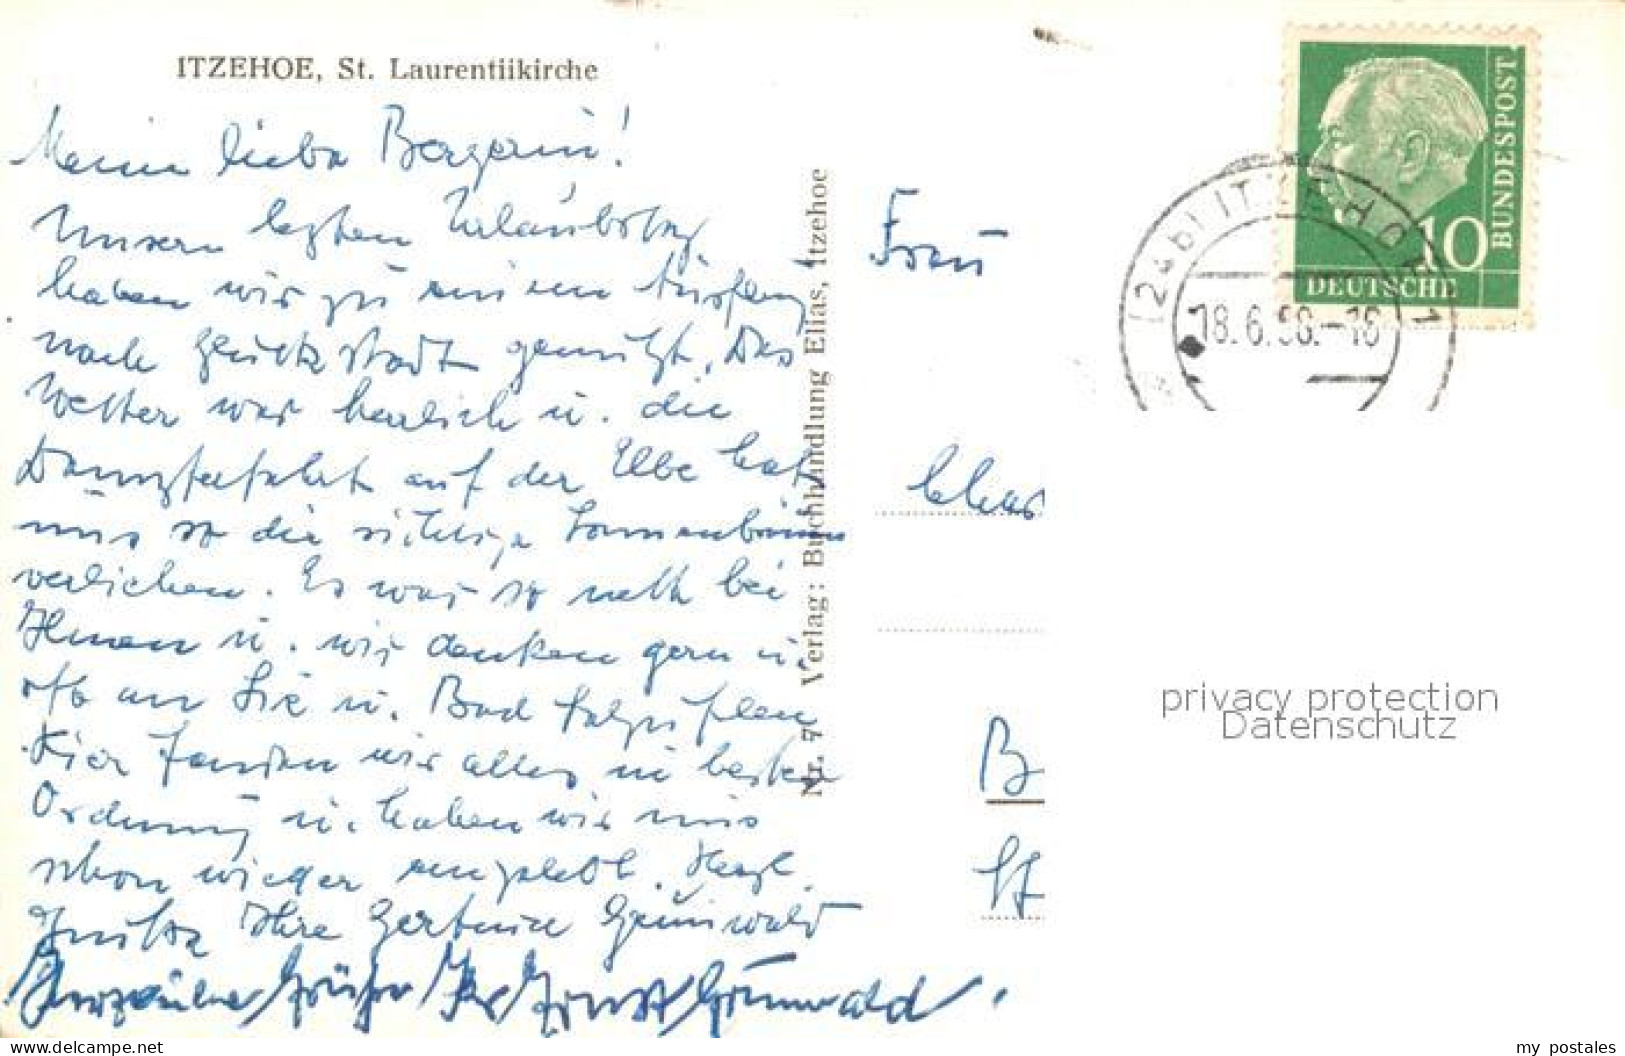 ITZEHOE, St. Laurentiikirche
Meine liebe Bergerin!
Unseren letzten Urlaubstag
haben wir zu einem Ausflug
nach Glückstadt genutzt. Das
Wetter war herrlich u. die
Dampferfahrt auf der Elbe hat
uns so die richtige Sonnenbräune
verliehen. Es war so nett bei
Ihnen u. wir denken gern u.
oft an Sie u. Bad Salzuflen
Hier fanden wir alles in bester
Ordnung u. haben wir uns
schon wieder eingelebt. Herzl.
Grüße Ihre Gertrud Grünwald
Herzliche Grüße Ihr Ernst Grünwald.
Nr. 7 Verlag: Buchhandlung Elias, Itzehoe
Frau
B
St
DEUTSCHE
BUNDESPOST
10
(24b) ITZEHOE 1
18.6.56.-16
privacy protection
Datenschutz
https://www.delcampe.net
my_postales